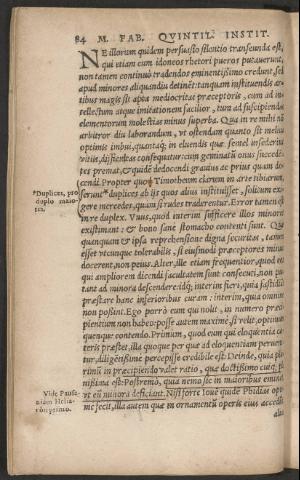 84 M. FAB. QVINTIL. INSTIT.
NE illorum quidem persuasio silentio transeunda est,
qui etiam cum idoneos rhetori pueros putauerunt,
non tamen continuò tradendos eminentissimo credunt, sed
apud minores aliquandiu detinēt: tanquam instituendis ar-
tibus magis sit apta mediocritas præceptoris, cum ad in-
tellectum atque imitationem facilior, tum ad suscipiendas
elementorum molestias minus superba. Qua in re mihi nō
arbitror diu laborandum, vt ostendam quanto sit melius
optimis imbui, quantaq; in eluendis quæ semel insederint
vitiis, difficultas consequatur: cùm geminatū onus succedē-
tes premat, & quidē dedocendi grauius ac prius quàm do-
cendi. Propter quod Timotheum clarum in arte tibiarum,
*Duplices, pro
duplo maio-
res.
ferunt* duplices ab iis quos alius instituisset, solitum exi-
gere mercedes, quàm si rudes traderentur. Error tamen est
in re duplex. Vnus, quòd interim sufficere illos minores
existimant: & bono sane stomacho contenti sunt. Quæ
quanquam & ipsa reprehensione digna securitas, tamen
esset vtcunque tolerabilis, si eiusmodi præceptores minus
docerent, non peius. Alter, ille etiam frequentior, quòd eos
qui ampliorem dicendi facultatem sunt consecuti, non pu-
tant ad minora descendere: idq; interim fieri, quia fastidiāt
præstare hanc inferioribus curam: interim, quia omnino
non possint. Ego porrò eum qui nolit, in numero præci-
pientium non habeo: posse autem maximè, si velit, optimū
quenque contendo. Primùm, quòd eum qui eloquentia ce-
teris præstet, illa quoque per quæ ad eloquentiam perueni-
tur, diligētissimè percepisse credibile est: Deinde, quia plu-
rimū in præcipiendo valet ratio, quæ doctissimo cuiq; pla-
nissima est: Postremò, quia nemo sic in maioribus eminet,
Vide Pausa-
niam Helia-
con primo.
vt eū minora deficiant. Nisi forte Iouē quidē Phidias opti-
mè fecit, illa autem quæ in ornamentū operis eius accedūt
alius